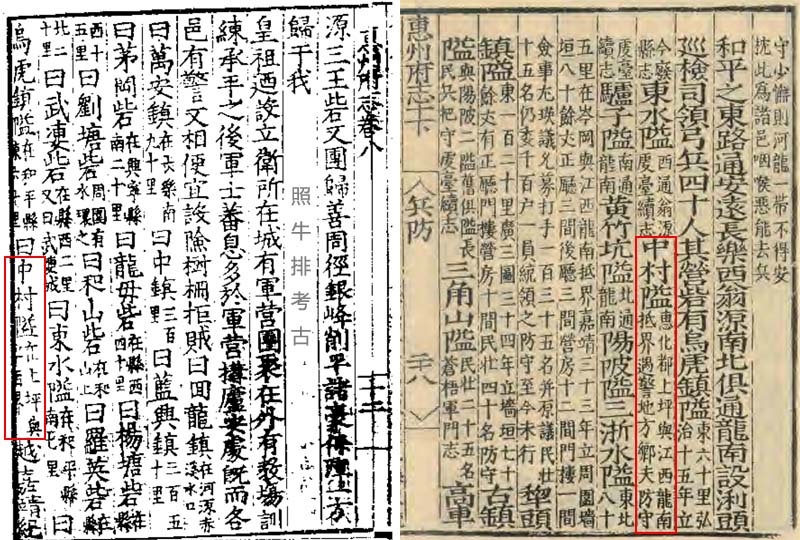 守少懈則河龍一帶不得安
抚此爲諸邑咽喉惡能去兵
和平之東路通安遠長樂西翁源南北俱通龍南設浰頭
巡檢司領弓兵四十人其營砦有烏虎鎮隘東六十里弘治十五年立
今廢縣志東水隘西通翁源虔臺續志中村隘惠化鄰上坪與江西龍南抵界遇警地方鄉夫防守
虔臺續志驢子隘南通龍南黃竹坑隘北通龍南陽陂隘三浰水隘東北八十
五里在岑岡與江西龍南抵界嘉靖三十三年立周圍墻
垣八十餘丈正廳三間後廳三間營房十二間門摟一間
僉事尤瑛議允募打手一百三十五名并原議民壯
十五名仍委千百戶一員統領之防守至今未行犂頭
鎮隘東一百二十里廣三圖三十四年立墻垣七十餘丈有正廳門樓營房十間民壯四十名防守古鎮
隘與陽陂二隘舊俱隘長民兵杷守虔臺續志三角山隘民壯二十五名蒼梧軍門志高車
惠州府志下 兵防
惠州府志卷八 十三
源三王砦又團歸善周徑銀峰削平諸豪條理一方
歸于我
照牛排考古
皇祖迺設立衛所在城有軍營團聚在外有教場訓
練承平之後軍士蕃息多於軍營搆廬安處旣而各
邑有警又相便宜設險樹柵拒賊曰回龍鎮在河源赤溪水口
曰萬安鎮在長樂南九十里曰中鎮三百里曰藍興鎮三百五十里
曰茅問砦在興寧縣南二十里曰龍毋砦在縣西四十里曰楊塘砦在縣
西十五里曰劉塘砦周圍有水環之曰和山砦在和山上曰羅英砦在縣
北二十里曰武婆砦在縣西二里又曰武婆城曰東水隘在和平縣南七里曰
烏虎鎮隘在和平縣東六十里曰中村隘在上坪與